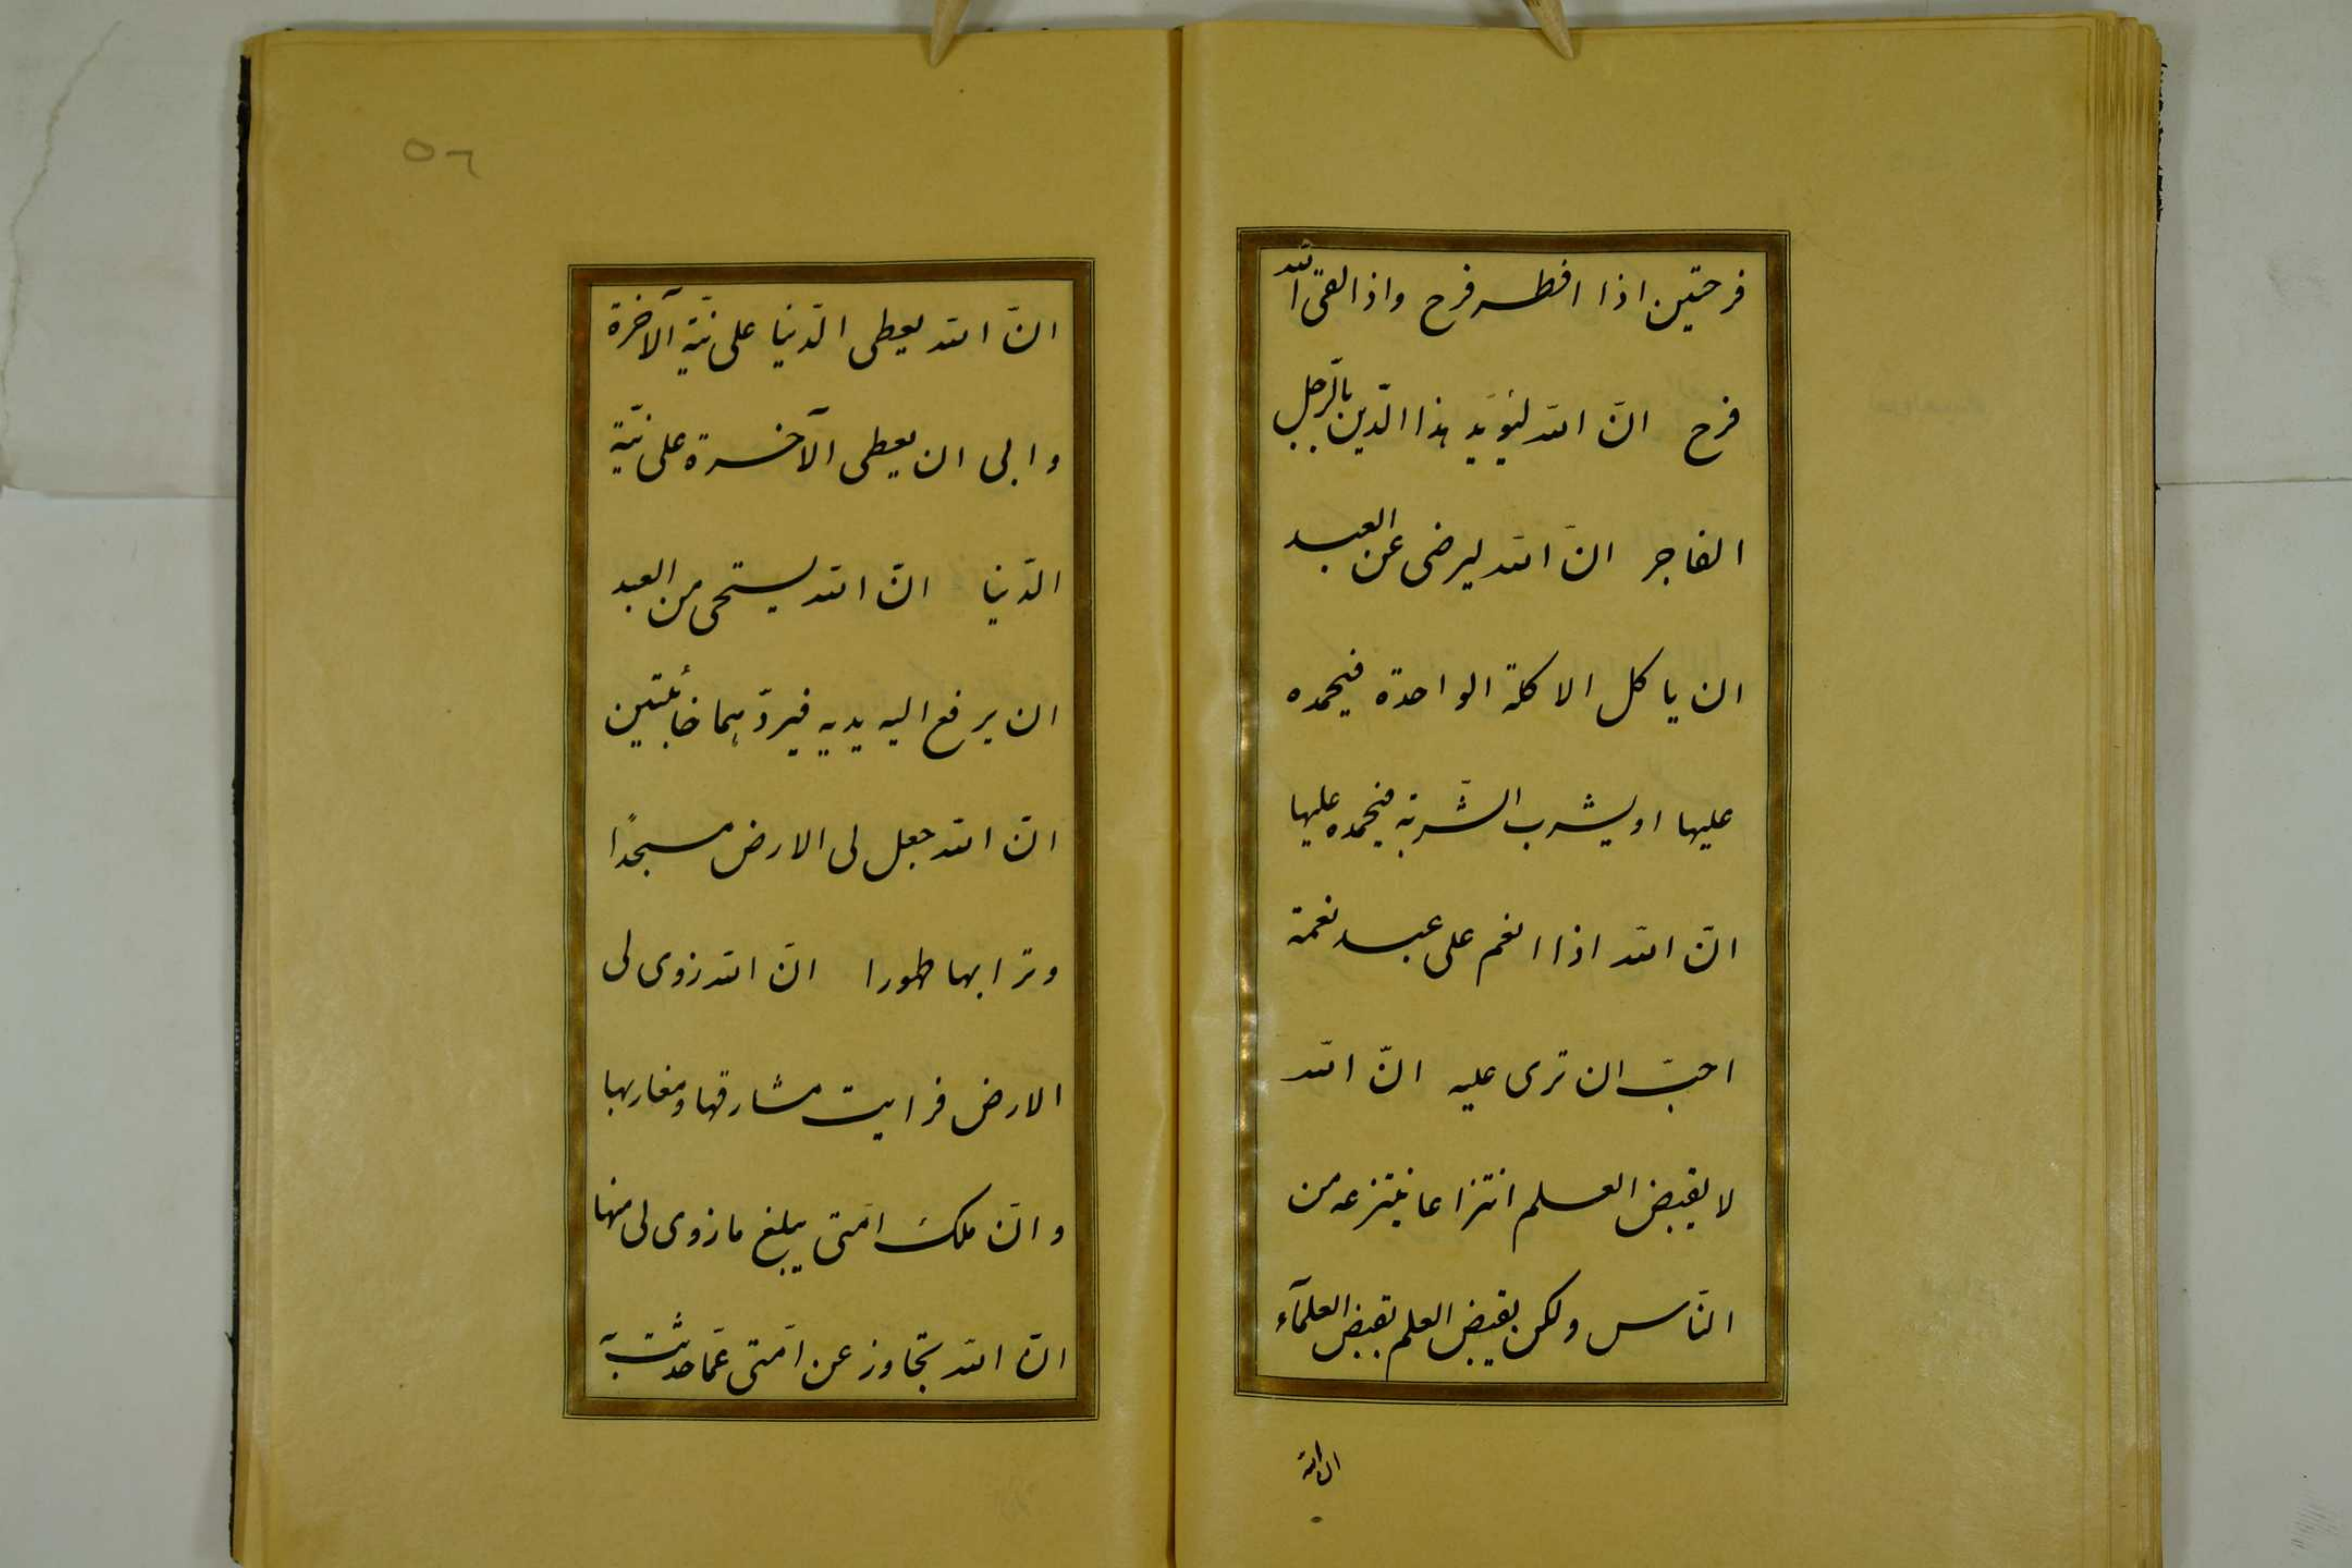 فرحتين اذا افطر فرح واذا لقى الله
فرح انّ الله ليؤيد هذا الدّين بالرّجل
الفاجر انّ الله ليرضى عن العبد
ان ياكل الاكلة الواحدة فيحمده
عليها او يشرب الشّربة فيحمده عليها
انّ الله اذا انعم على عبد نعمة
احبّ ان ترى عليه انّ الله
لا يقبض العلم انتزاعا ينتزعه من
النّاس ولكن يقبض العلم بقبض العلمآء
ان الله
٥٦
انّ الله يعطى الدّنيا على نيّة الآخرة
وابى ان يعطى الآخرة على نيّة
الدّنيا انّ الله ليستحى من العبد
ان يرفع اليه يديه فيردّهما خائبتين
انّ الله جعل لى الارض مسجدًا
وترابها طهورا انّ الله زوى لى
الارض فرايت مشارقها ومغاربها
وانّ ملك امّتى يبلغ ما زوى لى منها
انّ الله تجاوز عن امّتى عمّا حدثت به